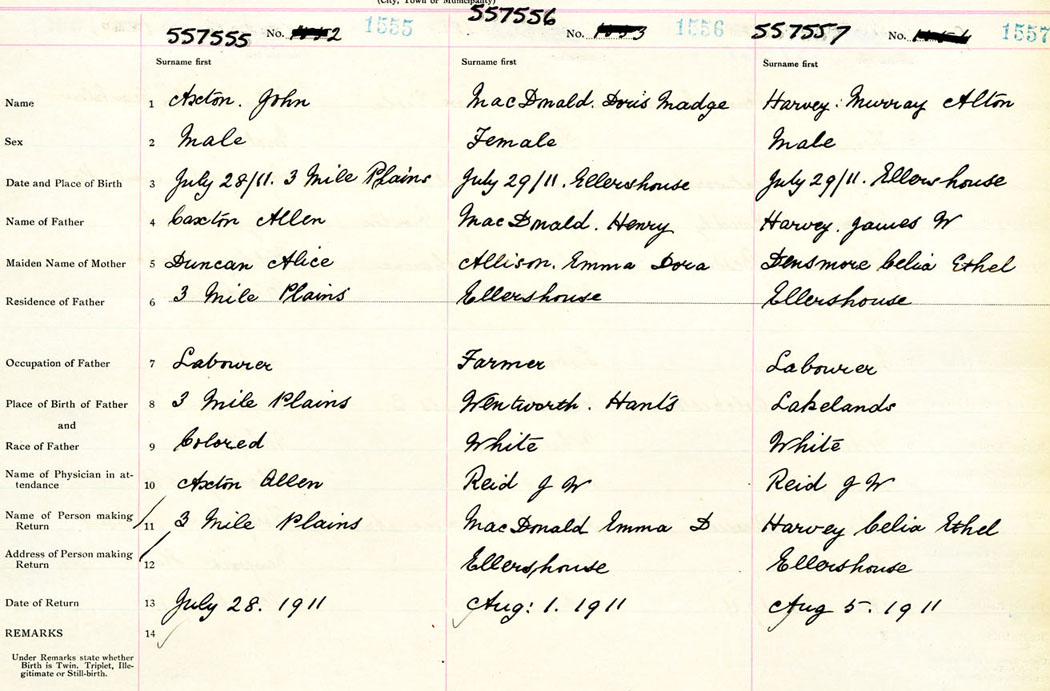 (City, Town or Municipality)
557555 No. 2 1555 557556 No. 3 1556 557557 No. 1557
Surname first Surname first Surname first
Name 1 Axton. John MacDonald. Doris Madge Harvey. Murray Alton
Sex 2 Male Female Male
Date and Place of Birth 3 July 28/11. 3 Mile Plains July 29/11. Ellershouse July 29/11. Ellershouse
Name of Father 4 Caxton Allen MacDonald. Henry Harvey. James W
Maiden Name of Mother 5 Duncan Alice Allison. Emma Dora Densmore Celia Ethel
Residence of Father 6 3 Mile Plains Ellershouse Ellershouse
Occupation of Father 7 Labourer Farmer Labourer
Place of Birth of Father 8 3 Mile Plains Wentworth. Hants Lakelands
and
Race of Father 9 Colored White White
Name of Physician in at-
tendance 10 Axton Allen Reid J W Reid J W
Name of Person making
Return 11 3 Mile Plains MacDonald Emma D Harvey Celia Ethel
Address of Person making
Return 12 Ellershouse Ellershouse
Date of Return 13 July 28. 1911 Aug: 1. 1911 Aug 5. 1911
REMARKS 14
Under Remarks state whether
Birth is Twin. Triplet, Ille-
gitimate or Still-birth.